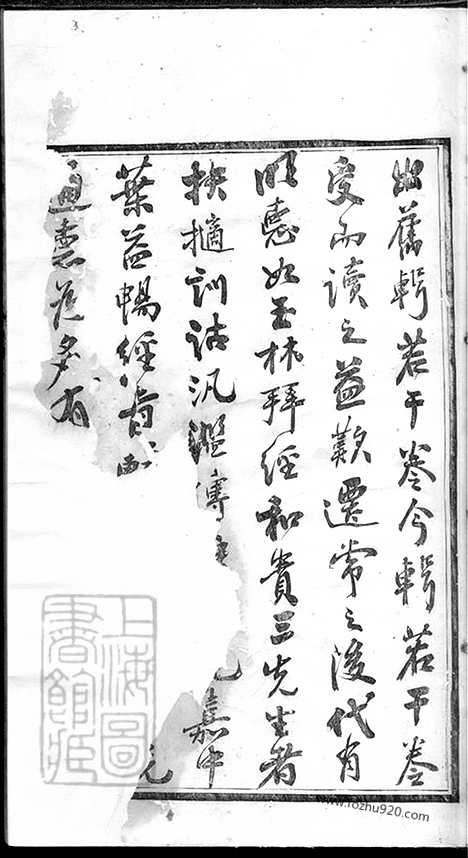 出舊輯若干卷今輯若干卷
受而讀之益歎遷常之後代有
明德如玉林拜經和貴三先生者
抉擿訓詁汎濫傳
嘉中
葉益暢經肯
多有
上海圖書館藏
www.rozhu920.com